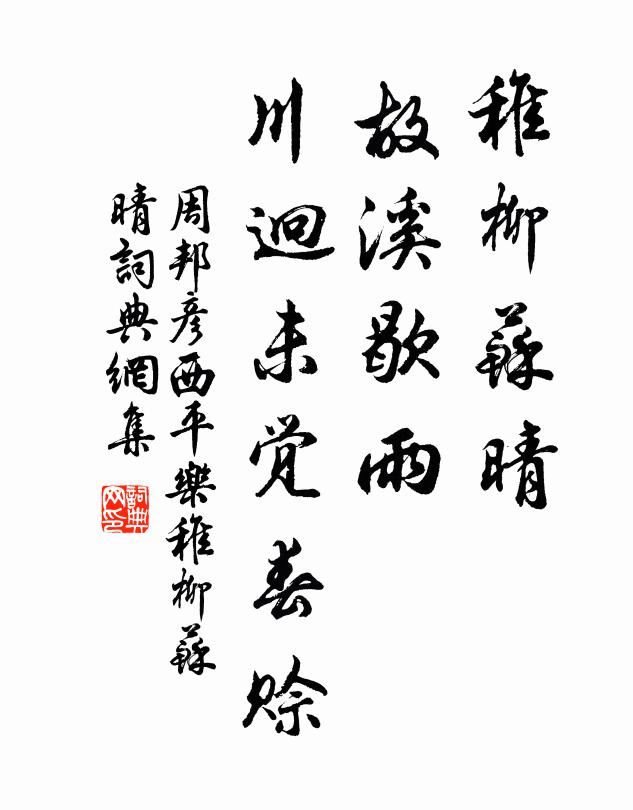 稚柳蘇晴
故溪歇雨
川迥未觉春赊
周邦彥西平樂稚柳蘇
晴詞典網集
詞典网印